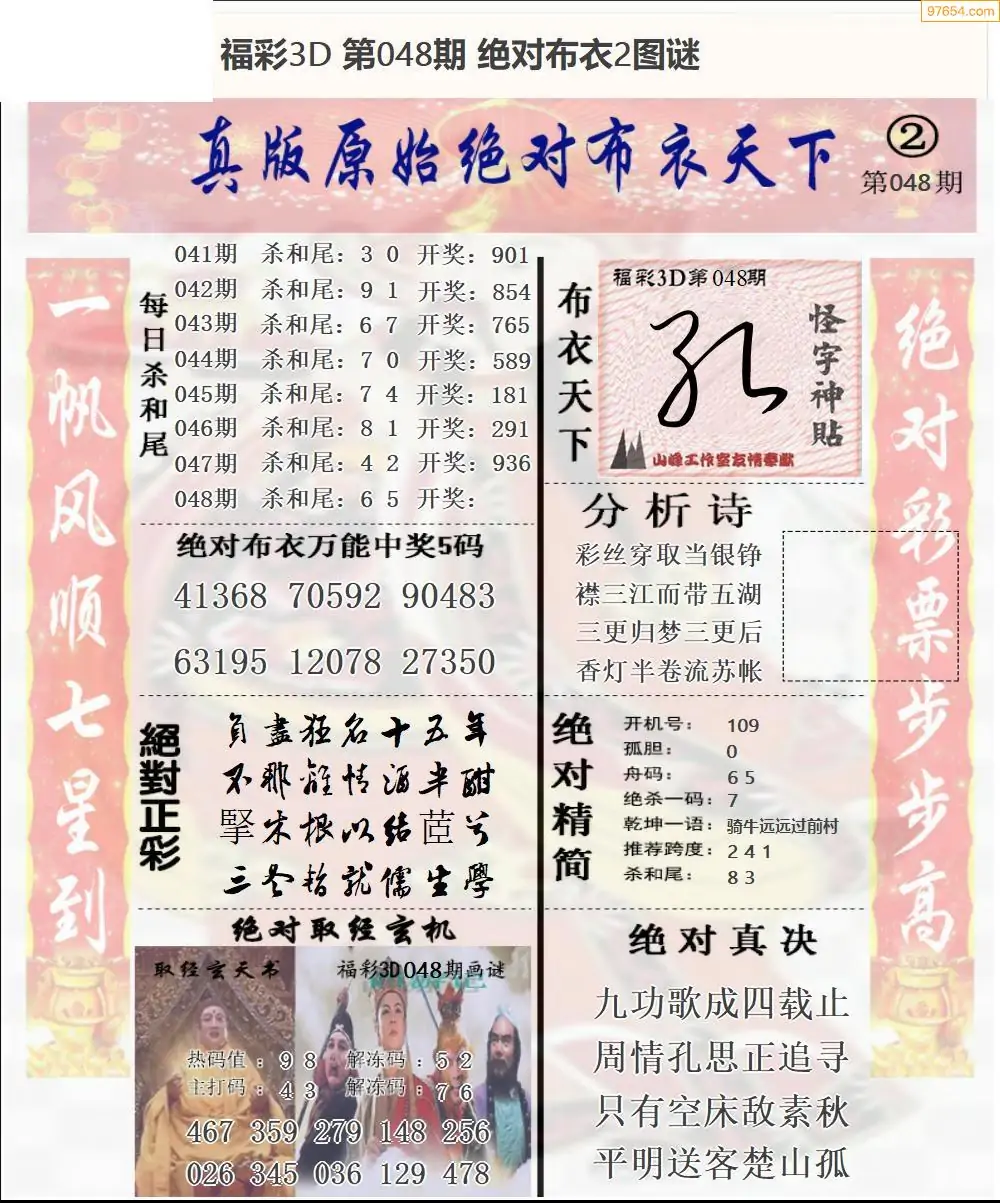 97654.com
福彩3D 第048期 绝对布衣2图谜
真版原始绝对布衣天下
②
第048期
一帆风顺七星到
每日杀和尾
041期 杀和尾：3 0 开奖：901
042期 杀和尾：9 1 开奖：854
043期 杀和尾：6 7 开奖：765
044期 杀和尾：7 0 开奖：589
045期 杀和尾：7 4 开奖：181
046期 杀和尾：8 1 开奖：291
047期 杀和尾：4 2 开奖：936
048期 杀和尾：6 5 开奖：
绝对布衣万能中奖5码
41368 70592 90483
63195 12078 27350
絕對正彩
負盡狂名十五年
不那離情酒半酣
掔木根以结茝兮
三冬暂就儒生學
绝对取经玄机
取经玄天书
福彩3D048期画谜
热码值：9 8 解冻码：5 2
主打码：4 3 解冻码：7 6
467 359 279 148 256
026 345 036 129 478
布衣天下
福彩3D第048期
怪字神贴
山峰工作室友情奉献
分析诗
彩丝穿取当银铮
襟三江而带五湖
三更归梦三更后
香灯半卷流苏帐
绝对精简
开机号： 109
孤胆： 0
舟码： 6 5
绝杀一码：7
乾坤一语：骑牛远远过前村
推荐跨度：2 4 1
杀和尾： 8 3
绝对真决
九功歌成四载止
周情孔思正追寻
只有空床敌素秋
平明送客楚山孤
绝对彩票步步高